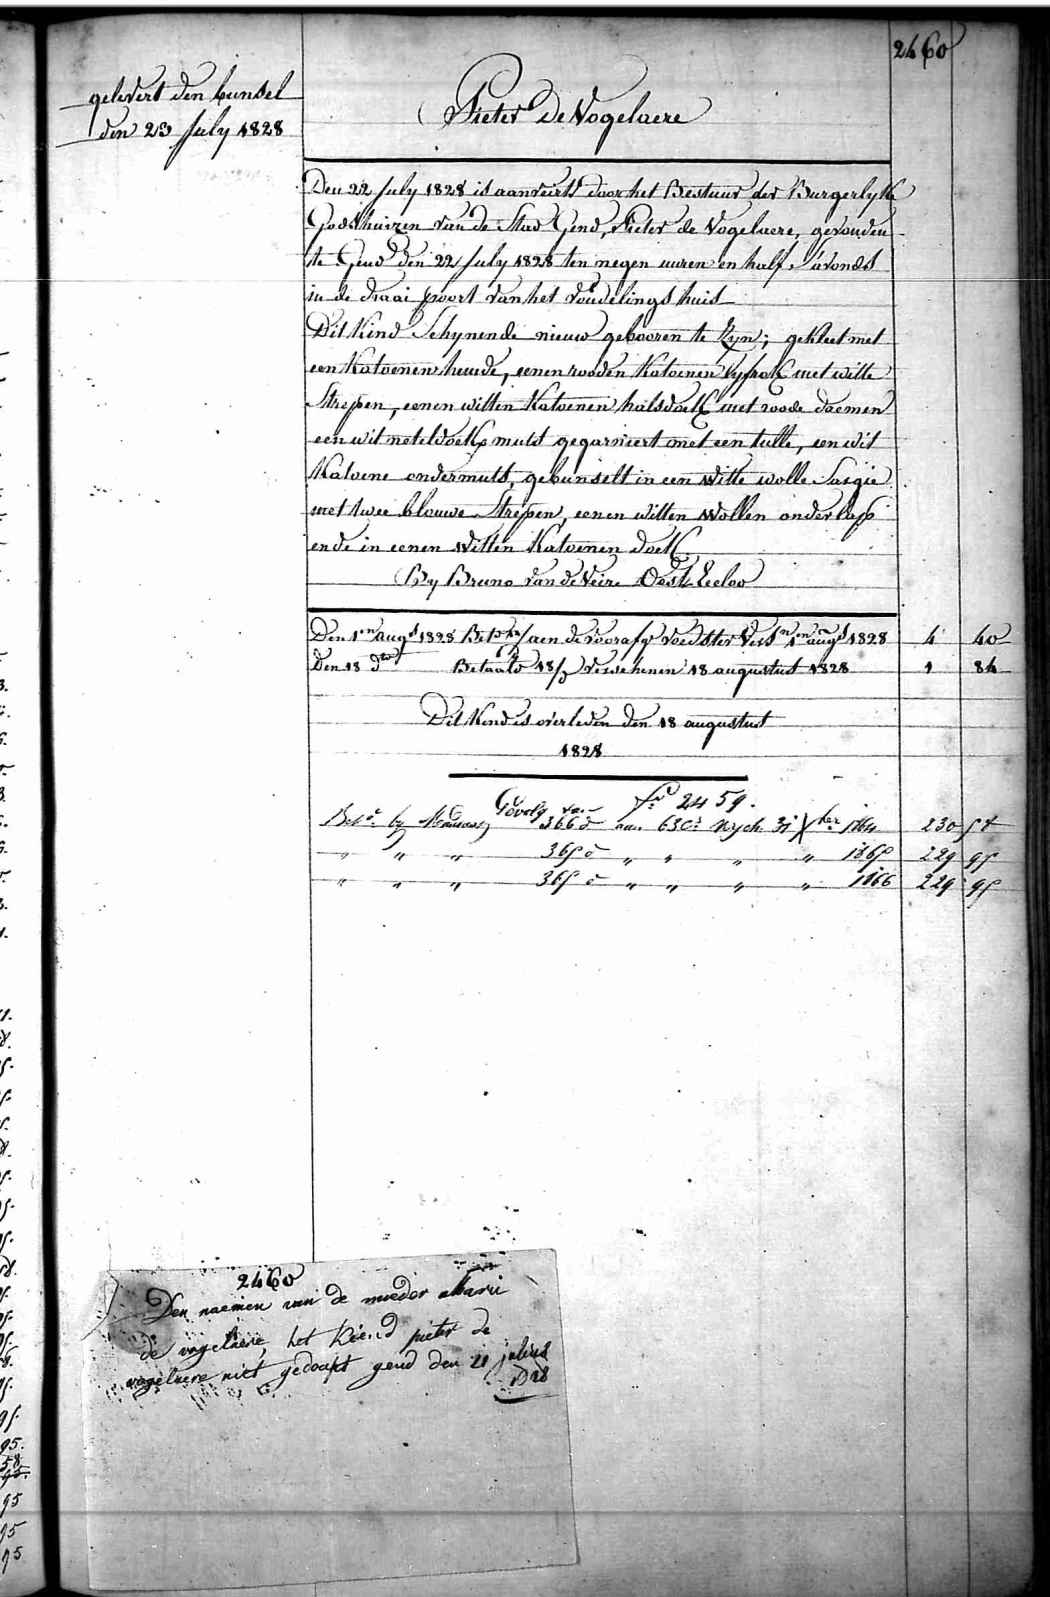 2460
gelevert den bunsel
den 23 July 1828
Pieter De Vogelaere
Den 22 July 1828 is aanveirt door het Bestuur der Burgerlyke
Godshuizen van de Stad Gend, Pieter de Vogelaere, gevonden
te Gend den 22 July 1828 ten negen uuren en half s'avonds
in de draai poort van het vondelings huis
Dit Kind Schynende nieuw gebooren te Zyn; gekleet met
een Katoenen hemde, eenen rooden Katoenen lyfrok met witte
Strepen, eenen witten Katoenen halsdoek met roode doemen
een wit neteldoek muts gegarniert met een tulle, een wit
Katoene ondermuts, gebunselt in een witte wolle Sargie
met twee blouwe Strepen, eenen witten Wollen onderlap
ende in eenen Witten Katoenen doek
By Bruno van de Veire Oost Eecloo
Den 1en augt 1828 aen de voorafg voedster 1en augt 1828 4 40
Den 18 do Betaald 18/ verschenen 18 augustus 1828 1 84
Dit Kind is overleden den 18 augustust
1828
Vervolg van fo 2459.
366 d aan 63 Cs 31 Xber 1864 230 58
" " " 365 d " " " " 1865 229 95
" " " 365 d " " " " 1866 229 95
2460
Den naemen van de moeder Marie
de vogelaere, het Kiend pieter de
vogelaere niet gedoopt gend den 21 julius
1828
95.
58
95.
95
95
95